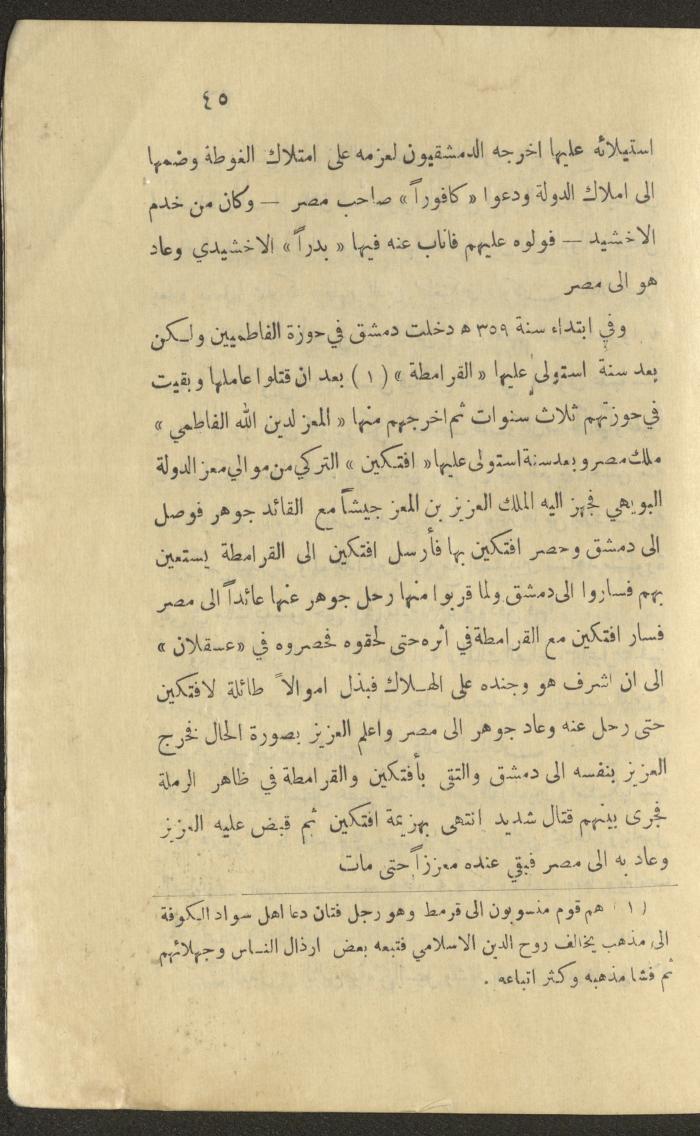 ٤٥
استيلائه عليها اخرجه الدمشقيون لعزمه على امتلاك الغوطة وضمها
الى املاك الدولة ودعوا « كافوراً » صاحب مصر — وكان من خدم
الاخشيد — فولوه عليهم فاناب عنه فيها « بدراً » الاخشيدي وعاد
هو الى مصر
وفي ابتداء سنة ٣٥٩ ه دخلت دمشق في حوزة الفاطميين ولكن
بعد سنة استولى عليها « القرامطة » ( ١ ) بعد ان قتلوا عاملها وبقيت
في حوزتهم ثلاث سنوات ثم اخرجهم منها « المعز لدين الله الفاطمي »
ملك مصر وبعد سنة استولى عليها « افتكين » التركي من موالي معز الدولة
البويهي فجهز اليه الملك العزيز بن المعز جيشاً مع القائد جوهر فوصل
الى دمشق وحصر افتكين بها فأرسل افتكين الى القرامطة يستعين
بهم فساروا الى دمشق ولما قربوا منها رحل جوهر عنها عائداً الى مصر
فسار افتكين مع القرامطة في أثره حتى لحقوه فحصروه في « عسقلان »
الى ان اشرف هو وجنده على الهلاك فبذل اموالاً طائلة لافتكين
حتى رحل عنه وعاد جوهر الى مصر واعلم العزيز بصورة الحال فخرج
العزيز بنفسه الى دمشق والتقى بأفتكين والقرامطة في ظاهر الرملة
فجرى بينهم قتال شديد انتهى بهزيمة افتكين ثم قبض عليه العزيز
وعاد به الى مصر فبقي عنده معززاً حتى مات
( ١ ) هم قوم منسوبون الى قرمط وهو رجل فتان دعا اهل سواد الكوفة
الى مذهب يخالف روح الدين الاسلامي فتبعه بعض ارذال الناس وجهلائهم
ثم فشا مذهبه وكثر اتباعه .